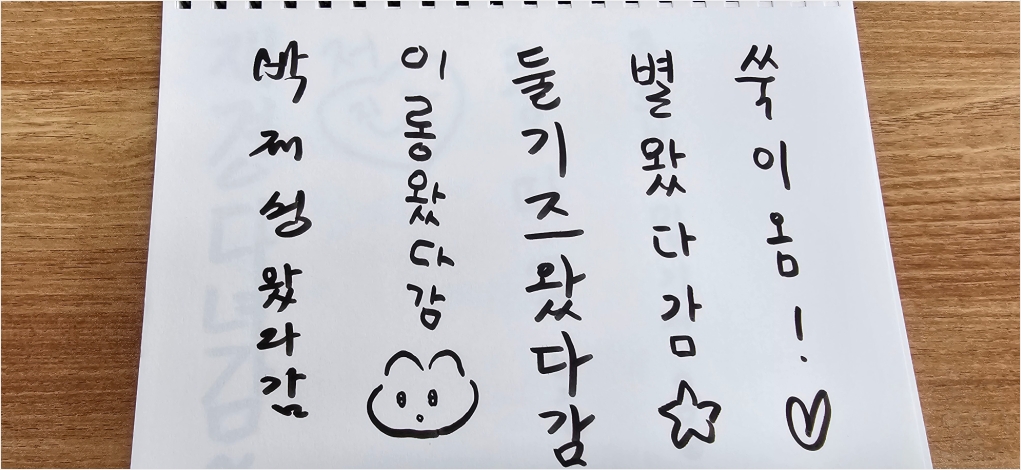 박재성왔다감
이룡왔다감
둘기즈왔다감
별왔다감
쑥이옴!